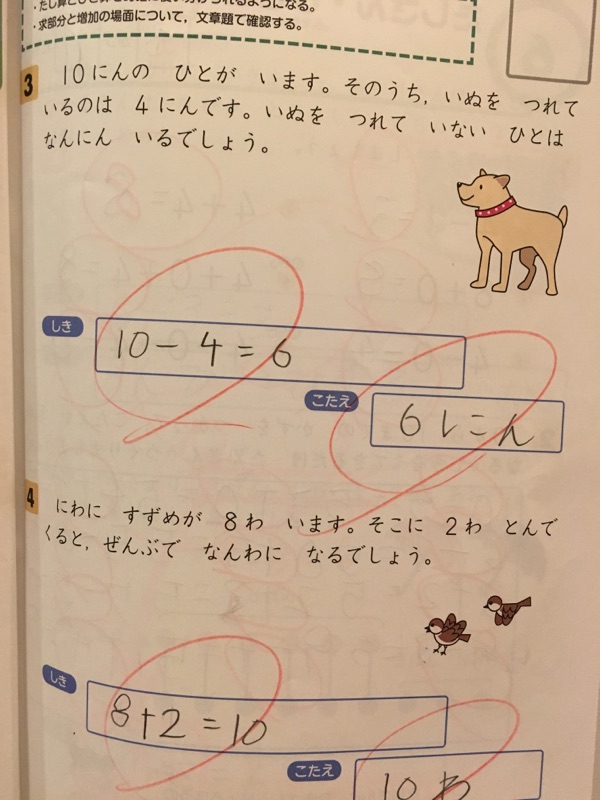 ・求部分と増加の場面について，文章題で確認する。
3 10にんの ひとが います。そのうち，いぬを つれて
いるのは 4にんです。いぬを つれて いない ひとは
なんにん いるでしょう。
しき 10－4＝6
こたえ 6にん
4 にわに すずめが 8わ います。そこに 2わ とんで
くると，ぜんぶで なんわに なるでしょう。
しき 8＋2＝10
こたえ 10わ